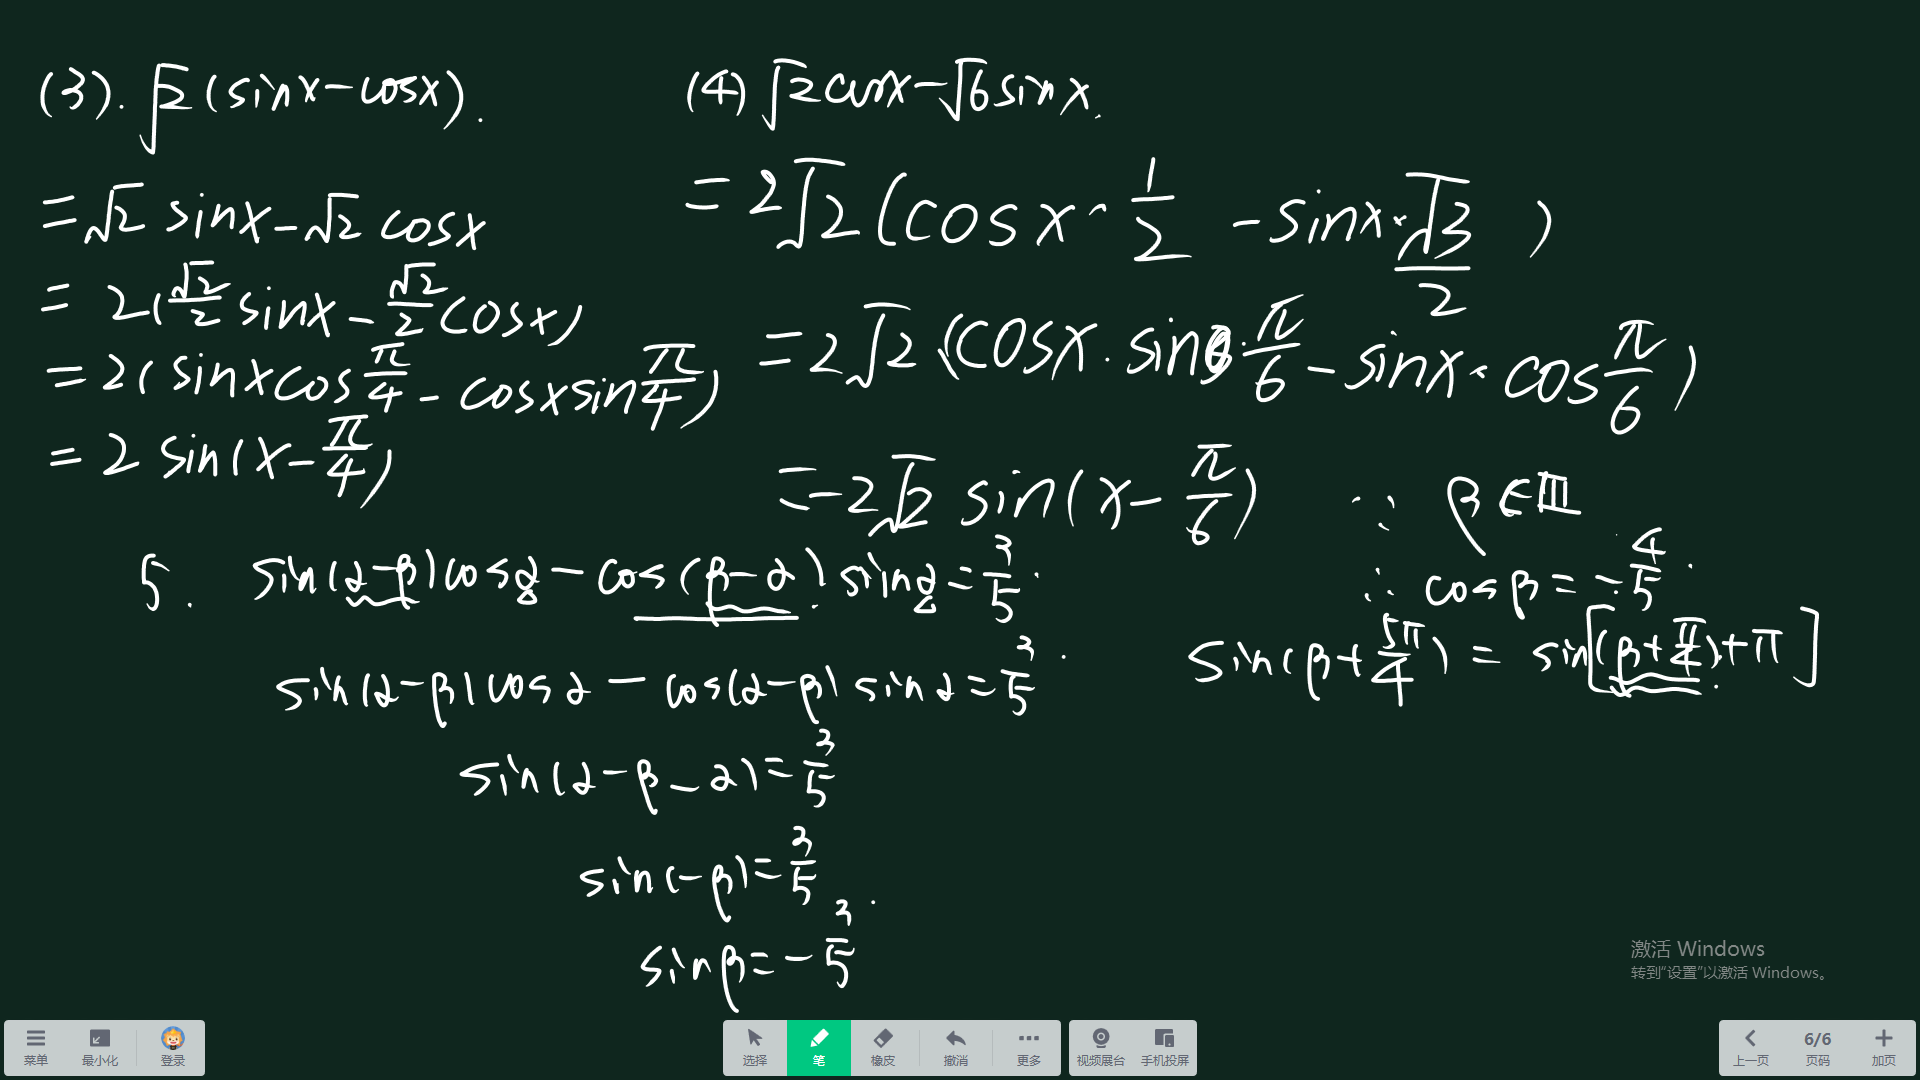 (3). √2 (sinx-cosx).
= √2 sinx - √2 cosx
= 2(√2/2 sinx - √2/2 cosx)
= 2(sinxcosπ/4 - cosxsinπ/4)
= 2 sin(x-π/4)
(4) √2cosx-√6sinx.
= 2√2(cosx·1/2 - sinx·√3/2)
= 2√2(cosx·sinπ/6 - sinx·cosπ/6)
= -2√2 sin(x-π/6)
5. sin(α-β)cosα - cos(β-α)·sinα = 3/5.
sin(α-β)cosα - cos(α-β)sinα = 3/5.
sin(α-β-α) = 3/5
sin(-β) = 3/5
sinβ = -3/5
∵ β∈Ⅲ
∴ cosβ = -4/5.
sin(β+5π/4) = sin[(β+π/4)+π]
激活 Windows
转到“设置”以激活 Windows。
菜单 最小化 登录 选择 笔 橡皮 撤消 更多 视频展台 手机投屏 上一页 6/6 页码 加页